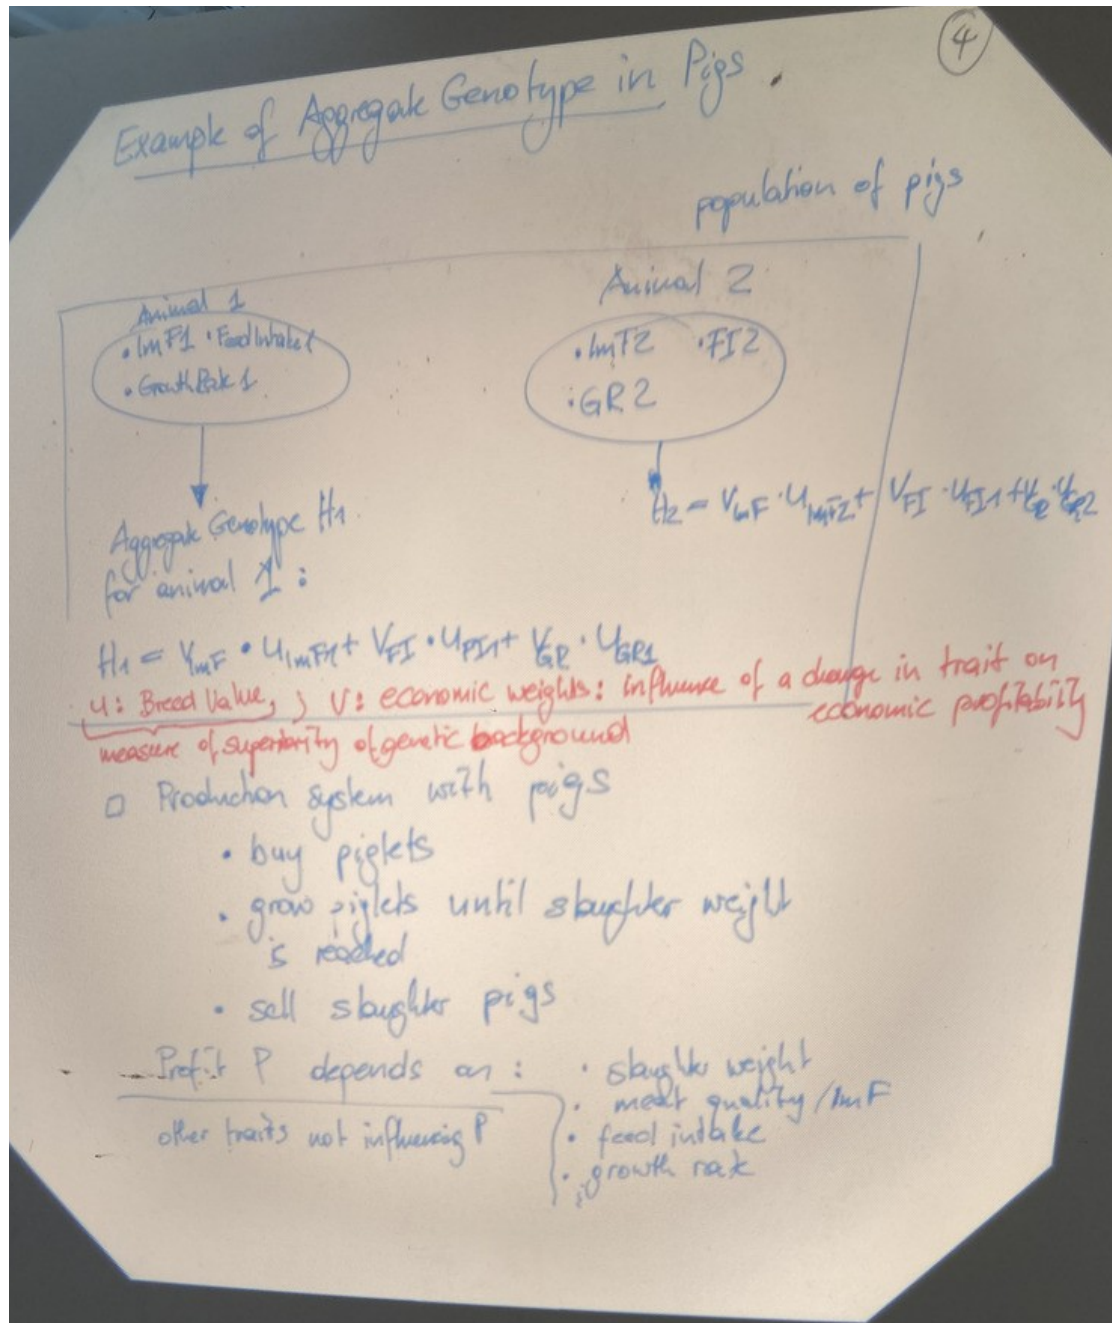 4
Example of Aggregate Genotype in Pigs
population of pigs
Animal 1
• ImF1 • FeedIntake1
• Growth Rate 1
Animal 2
• ImF2 • FI2
• GR2
Aggregate Genotype H1
for animal 1 :
H2 = VImF · UImF2 + VFI · UFI1 + VGR · UGR2
H1 = VImF · UImF1 + VFI · UFI1 + VGR · UGR1
u: Breed Value, ; V: economic weights: influence of a change in trait on
economic profitability
measure of superiority of genetic background
□ Production system with pigs
• buy piglets
• grow piglets until slaughter weight
is reached
• sell slaughter pigs
Profit P depends on :
• slaughter weight
• meat quality / ImF
• feed intake
• growth rate
other traits not influencing P